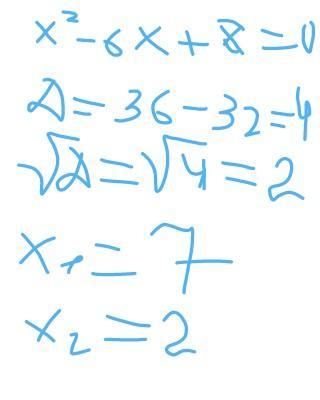 x² - 6x + 8 = 0
Δ = 36 - 32 = 4
√Δ = √4 = 2
x₁ = 7
x₂ = 2